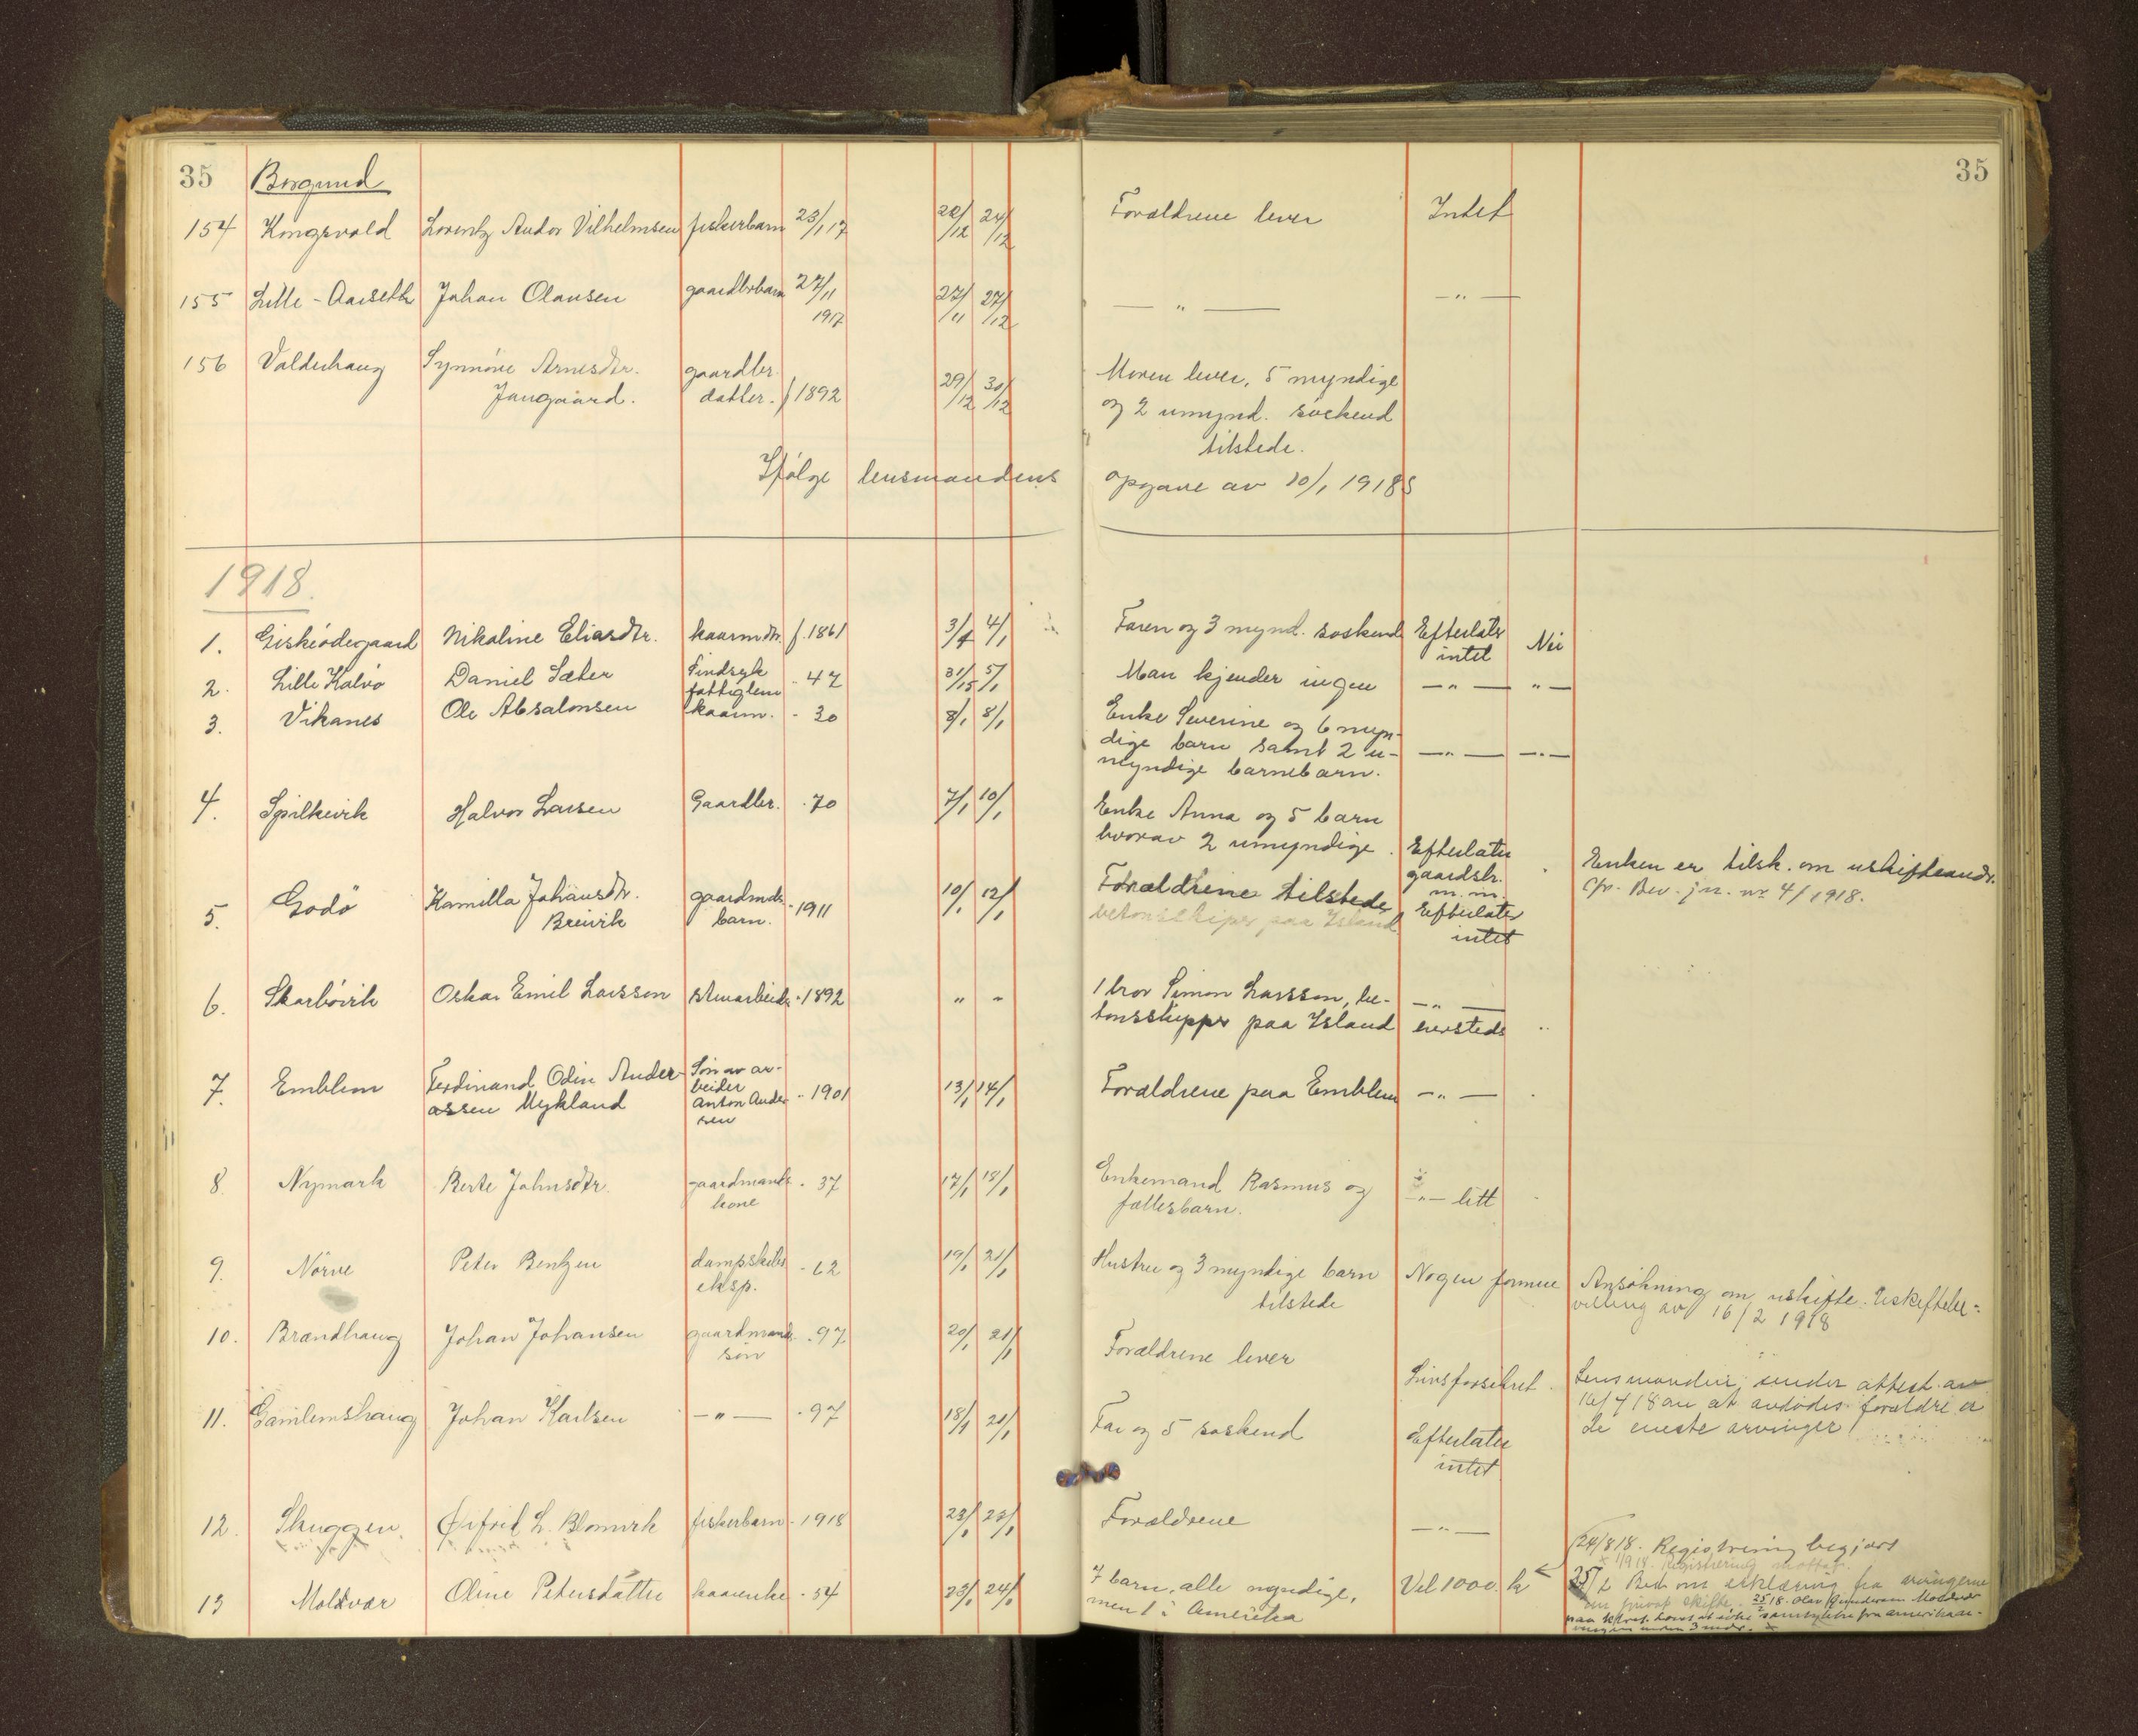 35 Borgund 35
154 Kongsvold Lorentz Andor Vilhelmsen fiskerbarn 23/1 17 22/12 24/12 Forældrene lever Intet
155 Lille-Aarseth Johan Olausen gaardbrbarn 27/11 1917 27/11 27/12 — " — — " —
156 Valderhaug Synnöve Arnesdtr. gaardbr. 29/12 30/12 Moren lever, 5 myndige
Jangaard. datter. f 1892 og 2 umynd. søskend
tilstede.
Ifölge lensmandens opgave av 10/1 1918
1918.
1. Giskeödegaard Nikoline Eliasdtr. kaarmdtr. f. 1861 3/1 4/1 Faren og 3 mynd. søskend Efterlater intet Nei
2. Lille Kalvö Daniel Sæter Sindsyk fattiglem - 47 31/15 5/1 Man kjender ingen — " — " —
3. Vikanes Ole Absalonsen kaarm. - 30 8/1 8/1 Enke Severine og 6 myn-
dige barn samt 2 u- — " — — " —
myndige barnebarn.
4. Spilkevik Halvor Larsen Gaardbr. - 70 7/1 10/1 Enke Anna og 5 barn
hvorav 2 umyndige. Efterlater gaardsbr. m.m. Enken er tilsk. om uskifteandr.
cfr. Bev. jn. nr 4/1918.
5. Godö Kamilla Johansdtr. gaardmds- - 1911 10/1 12/1 Forældrene tilstede Efterlater
Breivik barn. betonsskiper paa Island intet
6. Skarbövik Oskar Emil Larsson stuarbeider - 1892 " " 1 bror Simon Larsson, be- — " —
tonsskipper paa Island eiersteds
7. Emblem Ferdinand Odin Ander- Sön av ar-
assen Mykland beider Anton Andersen - 1901 13/1 14/1 Forældrene paa Emblem — " —
8. Nymark Berte Johnsdtr. gaardmands- - 37 17/1 18/1 Enkemand Rasmus og — " — litt
kone fællesbarn.
9. Nörve Peter Bentzen dampskibs - 62 19/1 21/1 Hustru og 3 myndige barn Nogen formue Ansökning om uskifte. Uskiftebe-
eksp. tilstede villing av 16/2 1918
10. Brandhaug Johan Johansen gaardmands - 97 20/1 21/1 Forældrene lever Livsforsikret. Lensmanden sender attest av
sön 16/4 18 om at avdödes forældre er
11. Gamlemshaug Johan Karlsen — " — - 97 18/1 21/1 Far og 5 søskend Efterlater de eneste arvinger
intet
12. Skuggen L. Blomvik fiskerbarn - 1918 23/1 23/1 Forældrene — " —
24/8 18. Registrering begjært
1/9 18. Registrering mottat.
13 Molvær Oline Petersdatter kaarenke - 54 23/1 24/1 7 barn, alle myndige, Vel 1000. kr 25/2 Bed om erklæring fra arvingerne
men 1 i Amerika om privat skifte. 25/2 18. Olav Gunderson Molvær